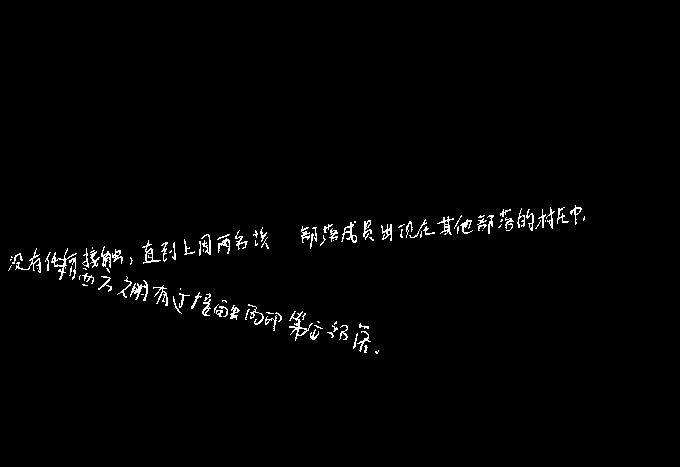 没有任何接触，直到上周两名该 部落成员出现在其他部落的村庄中.
文明有过接触的印第安部落.